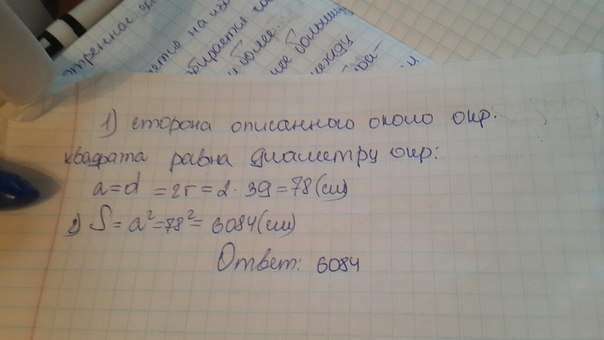 тренное
на
и более
1) сторона описанного около окр.
квадрата равна диаметру окр:
a=d =2r=2·39=78(см)
2) S=a²=78²=6084(см)
Ответ: 6084